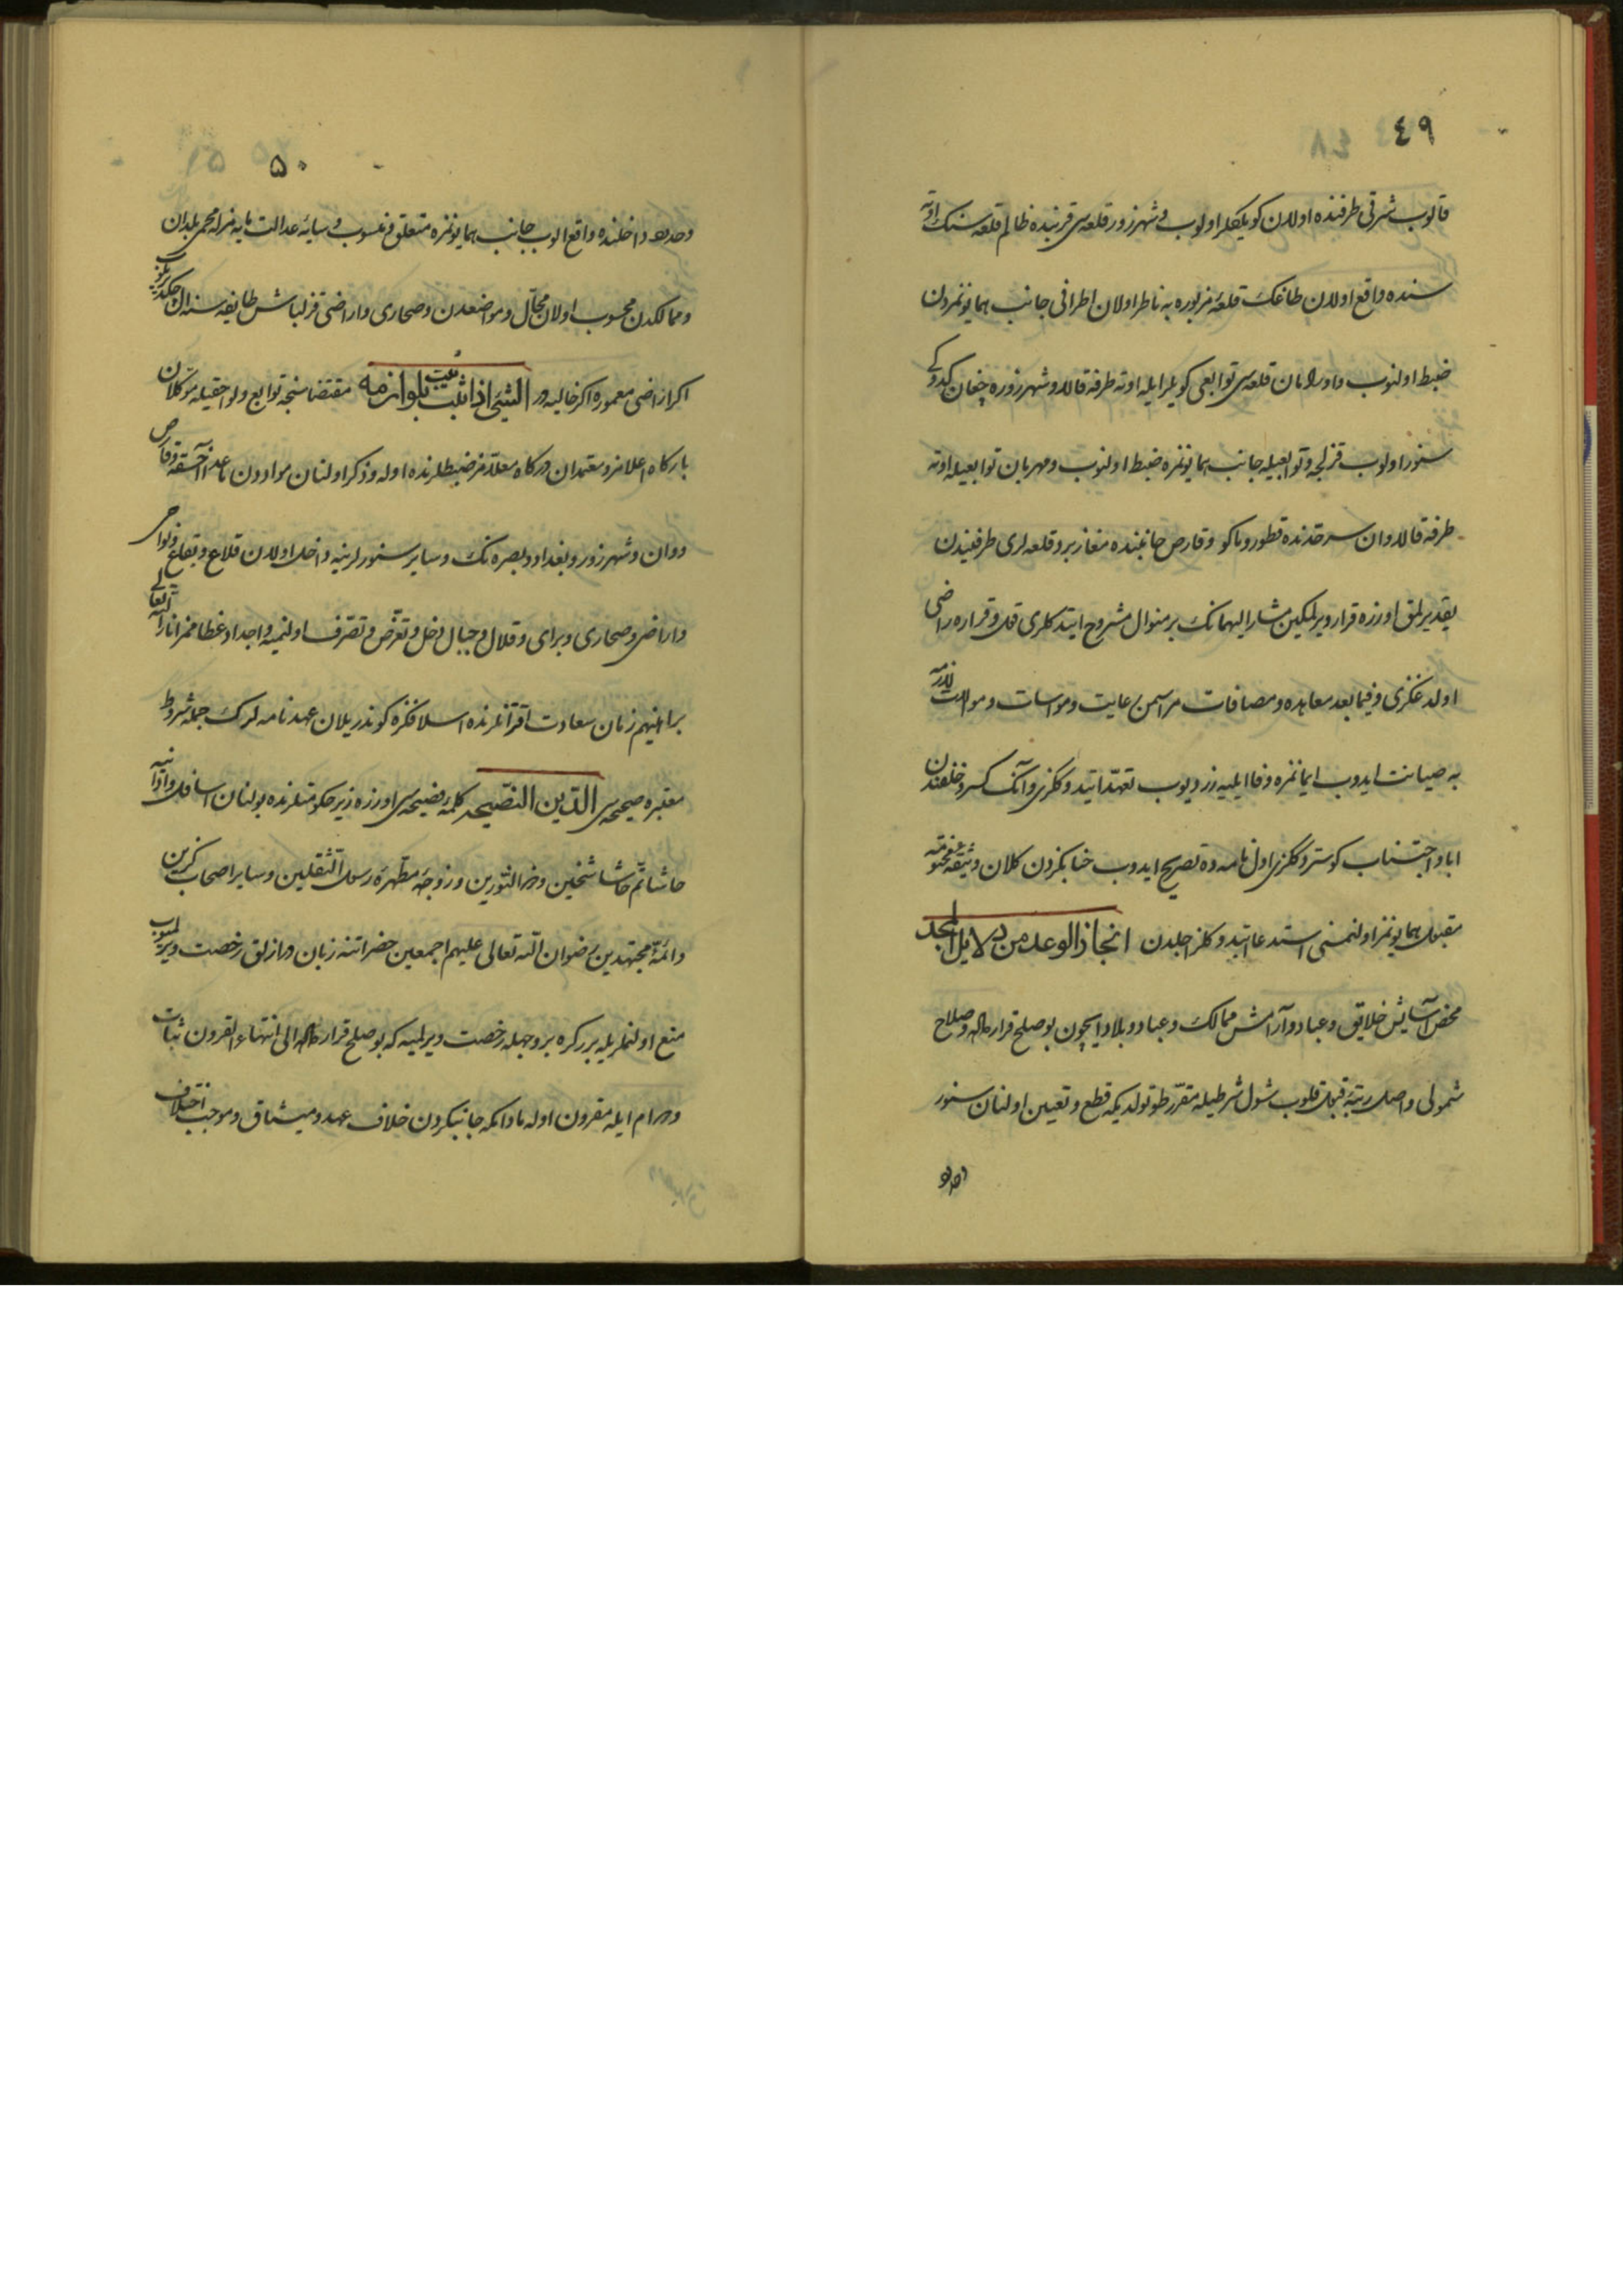 ٤٩
قالوب شرقی طرفنده اولان کویلکلر اولوب و شهرزور قلعه‌سی قربنده ظالم قلعه سنک اوته
سنده واقع اولان طاغک قلعهٔ مزبوره یه ناظر اولان اطرافی جانب همایونمزدن
ضبط اولنوب و اورامان قلعه‌سی توابعی کویلر ایله اوته طرفه قالا و شهرزوره چغان کدوکی
سنور اولوب قزلجه و توابعیله جانب همایونمزه ضبط اولنوب و مهربان توابعیله اوته
طرفه قالا و وان سرحدنده قطور و ماکو و قارص جانبنده مغازبرد قلعه‌لری طرفیندن
یقدیرلمق اوزره قرار ویرلمکین مشار الیهمانک بر منوال مشروح ایتدکلری قول و قراره راضی
اولدغکزی و فیما بعد معاهده و مصافات مراسمن رعایت و مواسات و موالات لازمه
یه صیانت ایدوب ایمانمزه وفا ایلیه‌رز دیوب تعهد ایتدوککزی و آنک کسر و خلفندن
ابا و اجتناب کوستردوککزی اول نامه ده تصریح ایدوب جنابکزدن کلان وثیقهٔ مختومه
مقبول همایونمز اولنمسنی استدعا ایتدوککز اجلدن انجاز الوعد من دلایل المجد
محض آسایش خلایق و عباد و آرامش ممالک و عباد و بلاد ایچون بو صلح قرارداده و صلاح
شمولی واصل رتبهٔ قبول قلوب شول شرطیله مقرر طوتولدیکه قطع و تعیین اولنان سنور
وحدود
٥٠
وحدود داخلنده واقع الوب جانب همایونمزه متعلق و منسوب و سایهٔ عدالت مایه‌مزله محمی بلدان
و ممالکدن محسوب اولان محال و مواضعدن و صحاری و اراضی قزلباش طایفه‌سنه ال چکدیریلوب
اکر اراضی معموره اکر خالیه در الشیء اذا ثبت ثبت بلوازمه مقتضاسنجه توابع و لواحقیله موکلان
بارکاه اعلامز و معتمدان درکاه معلامز ضبطلرنده اوله و ذکر اولنان مواددن ماعدا آخسقه و قارص
و وان و شهرزور و بغداد و بصره نک و سایر سنورلرینه داخل اولان قلاع و بقاع و نواحی
و اراضی و صحاری و براری و قلال و جبال دخل و تعرض و تصرف اولنمیه و اجداد عظاممز انار الله تعالی
براهینهم زمان سعادت اقترانلرنده اسلافکزه کوندریلان عهدنامه لرک جمله شروط
معتبره صحیحه‌سی الدین النصیحه کلمهٔ فصیحه‌سی اوزره زیر حکومتلرنده بولنان اسافل و ادانیه
حاشا ثم حاشا شیخین و ذی النورین و زوجهٔ مطهرهٔ رسول الثقلین و سایر اصحاب کزین
و ائمهٔ مجتهدین رضوان الله تعالی علیهم اجمعین حضراتنه زبان درازلق رخصت ویرلمیوب
منع اولنمریله بر کره بر وجهله رخصت ویرلمیه که بو صلح قرارداده الی انتهاء القرون ثبات
و دوام ایله مقرون اوله مادامکه جانبکزدن خلاف عهد و میثاق و موجب اختلاف